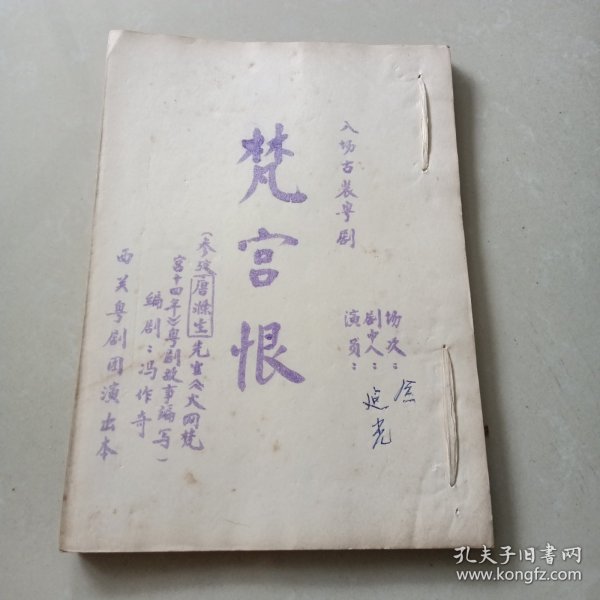 八场古装粤剧
场次:全
剧中人:
演员:延光
梵宫恨
(参考唐滌生先生《火网梵
宫十四年》粤剧故事编写)
编剧:冯作奇
西关粤剧团演出本
孔夫子旧书网
www.kongfz.com